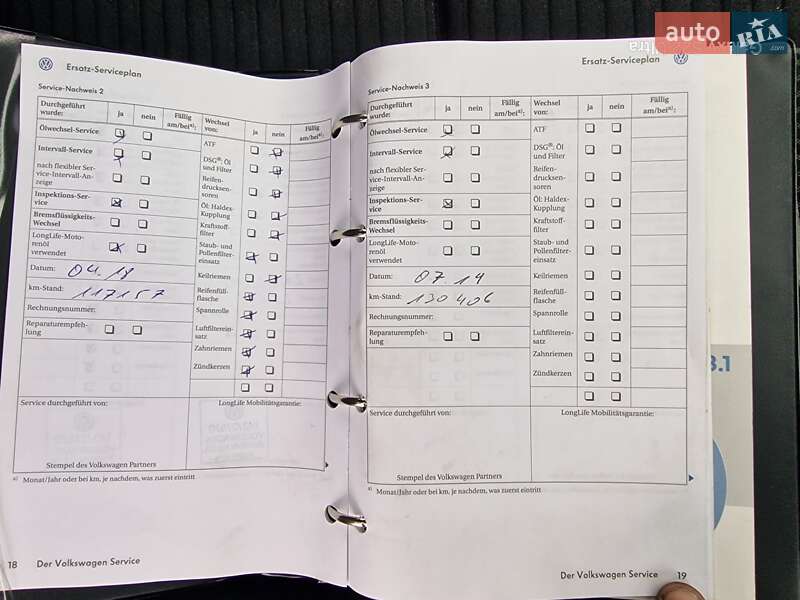 auto RIA.com
Ersatz-Serviceplan
Service-Nachweis 2
Durchgeführt wurde: ja nein Fällig am/bei a):
Ölwechsel-Service
Intervall-Service
nach flexibler Ser-
vice-Intervall-An-
zeige
Inspektions-Ser-
vice
Bremsflüssigkeits-
Wechsel
LongLife-Moto-
renöl
verwendet
Datum: 04.19
km-Stand: 117157
Rechnungsnummer:
Reparaturempfeh-
lung
Wechsel von: ja nein Fällig am/bei a):
ATF
DSG®: Öl
und Filter
Reifen-
drucksen-
soren
Öl: Haldex-
Kupplung
Kraftstoff-
filter
Staub- und
Pollenfilter-
einsatz
Keilriemen
Reifenfüll-
flasche
Spannrolle
Luftfilterein-
satz
Zahnriemen
Zündkerzen
Service durchgeführt von:
LongLife Mobilitätsgarantie:
Stempel des Volkswagen Partners
a) Monat/Jahr oder bei km, je nachdem, was zuerst eintritt
18 Der Volkswagen Service
Ersatz-Serviceplan
Service-Nachweis 3
Durchgeführt wurde: ja nein Fällig am/bei a):
Ölwechsel-Service
Intervall-Service
nach flexibler Ser-
vice-Intervall-An-
zeige
Inspektions-Ser-
vice
Bremsflüssigkeits-
Wechsel
LongLife-Moto-
renöl
verwendet
Datum: 07.14
km-Stand: 130406
Rechnungsnummer:
Reparaturempfeh-
lung
Wechsel von: ja nein Fällig am/bei a):
ATF
DSG®: Öl
und Filter
Reifen-
drucksen-
soren
Öl: Haldex-
Kupplung
Kraftstoff-
filter
Staub- und
Pollenfilter-
einsatz
Keilriemen
Reifenfüll-
flasche
Spannrolle
Luftfilterein-
satz
Zahnriemen
Zündkerzen
Service durchgeführt von:
LongLife Mobilitätsgarantie:
Stempel des Volkswagen Partners
a) Monat/Jahr oder bei km, je nachdem, was zuerst eintritt
Der Volkswagen Service 19
3.1